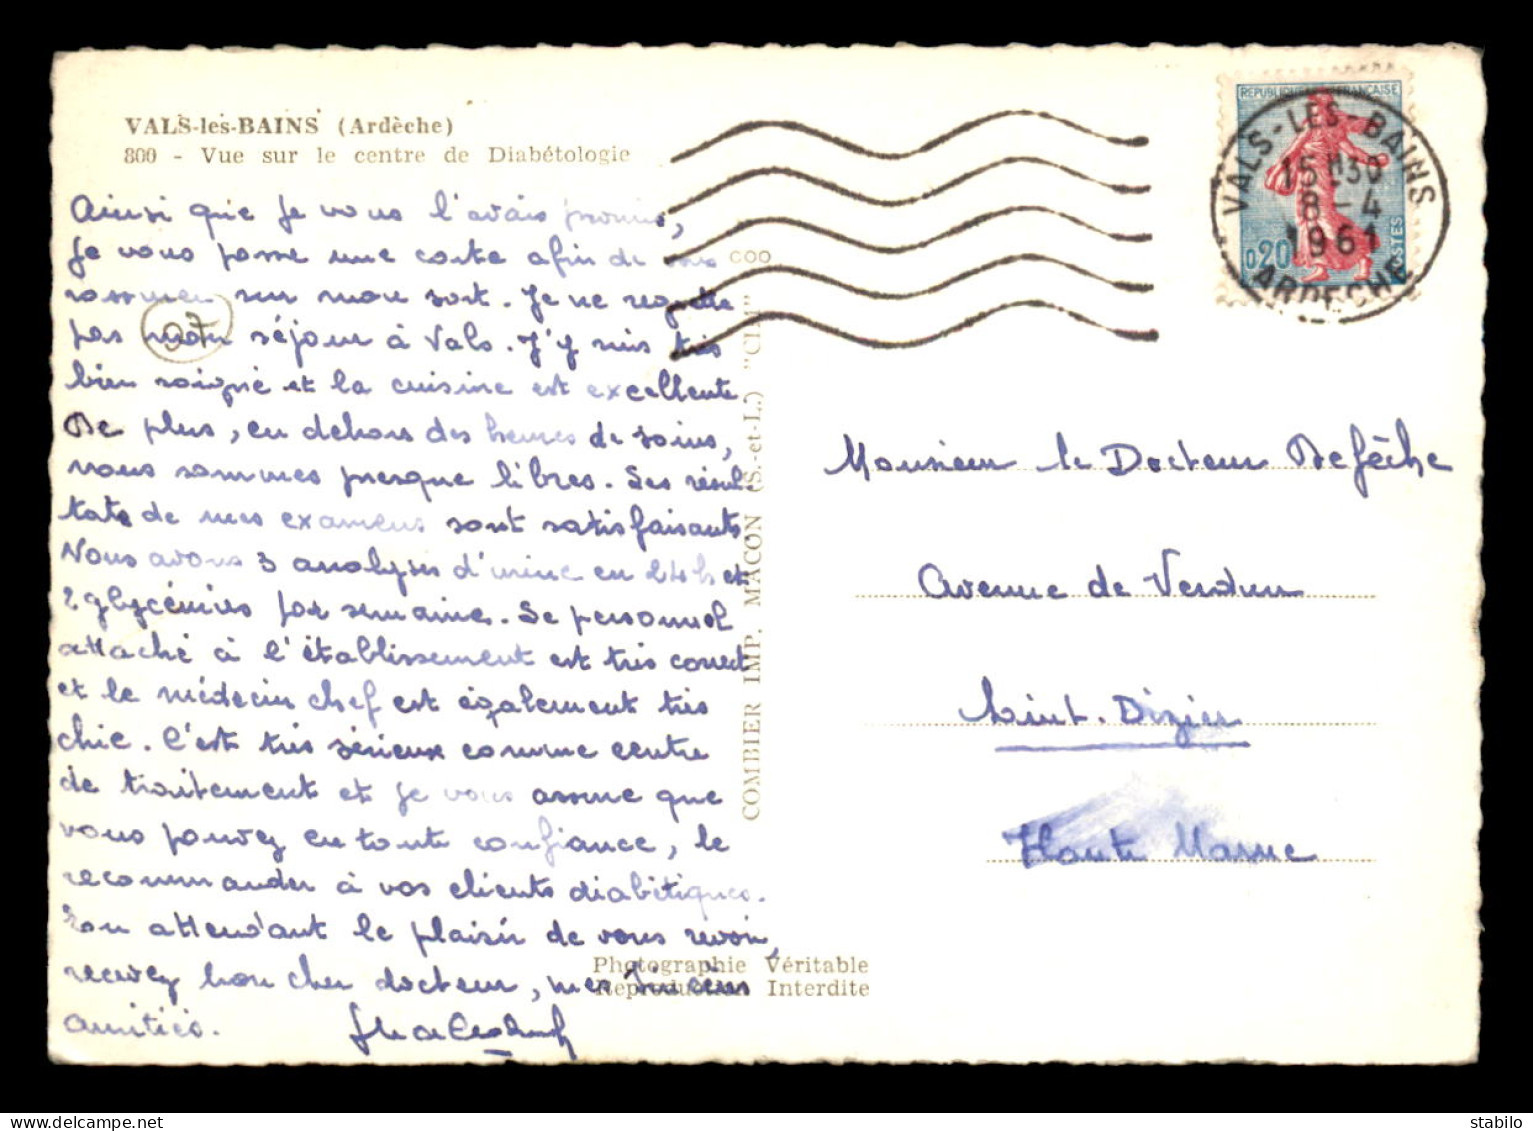 VALS-les-BAINS (Ardèche)
800 - Vue sur le centre de Diabétologie
Ainsi que je vous l'avais promis,
je vous passe une carte afin de vous
rassurer sur mon sort. Je ne regrette
pas mon séjour à Vals. J'y suis très
bien soigné et la cuisine est excellente
De plus, en dehors des heures de soins,
nous sommes presque libres. Les résul-
tats de mes examens sont satisfaisants
Nous avons 3 analyses d'urine en 24h et
2 glycémies par semaine. Le personnel
attaché à l'établissement est très correct
et le médecin chef est également très
chic. C'est très sérieux comme centre
de traitement et je vous assure que
vous pouvez en toute confiance, le
recommander à vos clients diabétiques.
En attendant le plaisir de vous revoir,
recevez mon cher docteur, mes sincères
amitiés.
07
COMBIER IMP. MACON (S.-et-L.) "CIM"
Photographie Véritable
Reproduction Interdite
REPUBLIQUE FRANÇAISE
0,20
POSTES
VALS-LES-BAINS
15H30
8-4
1961
ARDECHE
Monsieur le Docteur Defêche
Avenue de Verdun
Saint-Dizier
Haute Marne